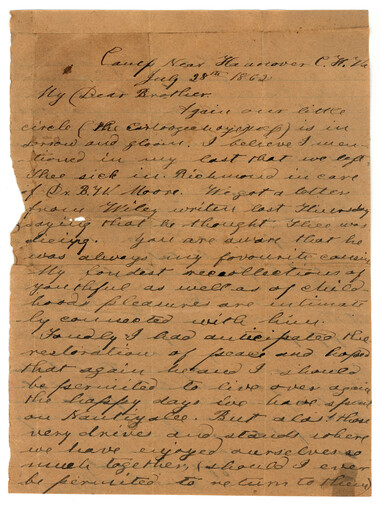 Camp Near Hannover C. H. Va
July 28th 1862
My Dear Brother.
Again our little
circle (the ) is in
sorrow and gloom. I believe I men-
tioned in my last that we left
Thee sick in Richmond in care
of Dr. B. W. Moore. We got a letter
from Wiley written last Thursday
saying that he thought Thee was
dieing. You are aware that he
was always my favourite cousin
My fondest recollections of
youthful as well as of child-
hood pleasures are intimate
ly connected with him.
Fondly I had anticipated the
restoration of peace and hoped
that again he and I should
be permitted to live over again
the happy days we have spent
on Nantiyalee. But alas! those
very drives and stands where
we have enjoyed ourselves so
much together, (should I ever
be permitted to return to them)